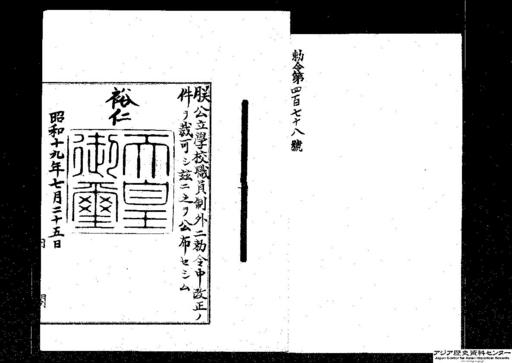 勅令第四百七十八號
朕公立學校職員制外二勅令中改正ノ
件ヲ裁可シ茲ニ之ヲ公布セシム
裕仁
天皇
御璽
昭和十九年七月二十五日
アジア歴史資料センター
Japan Center for Asian Historical Records